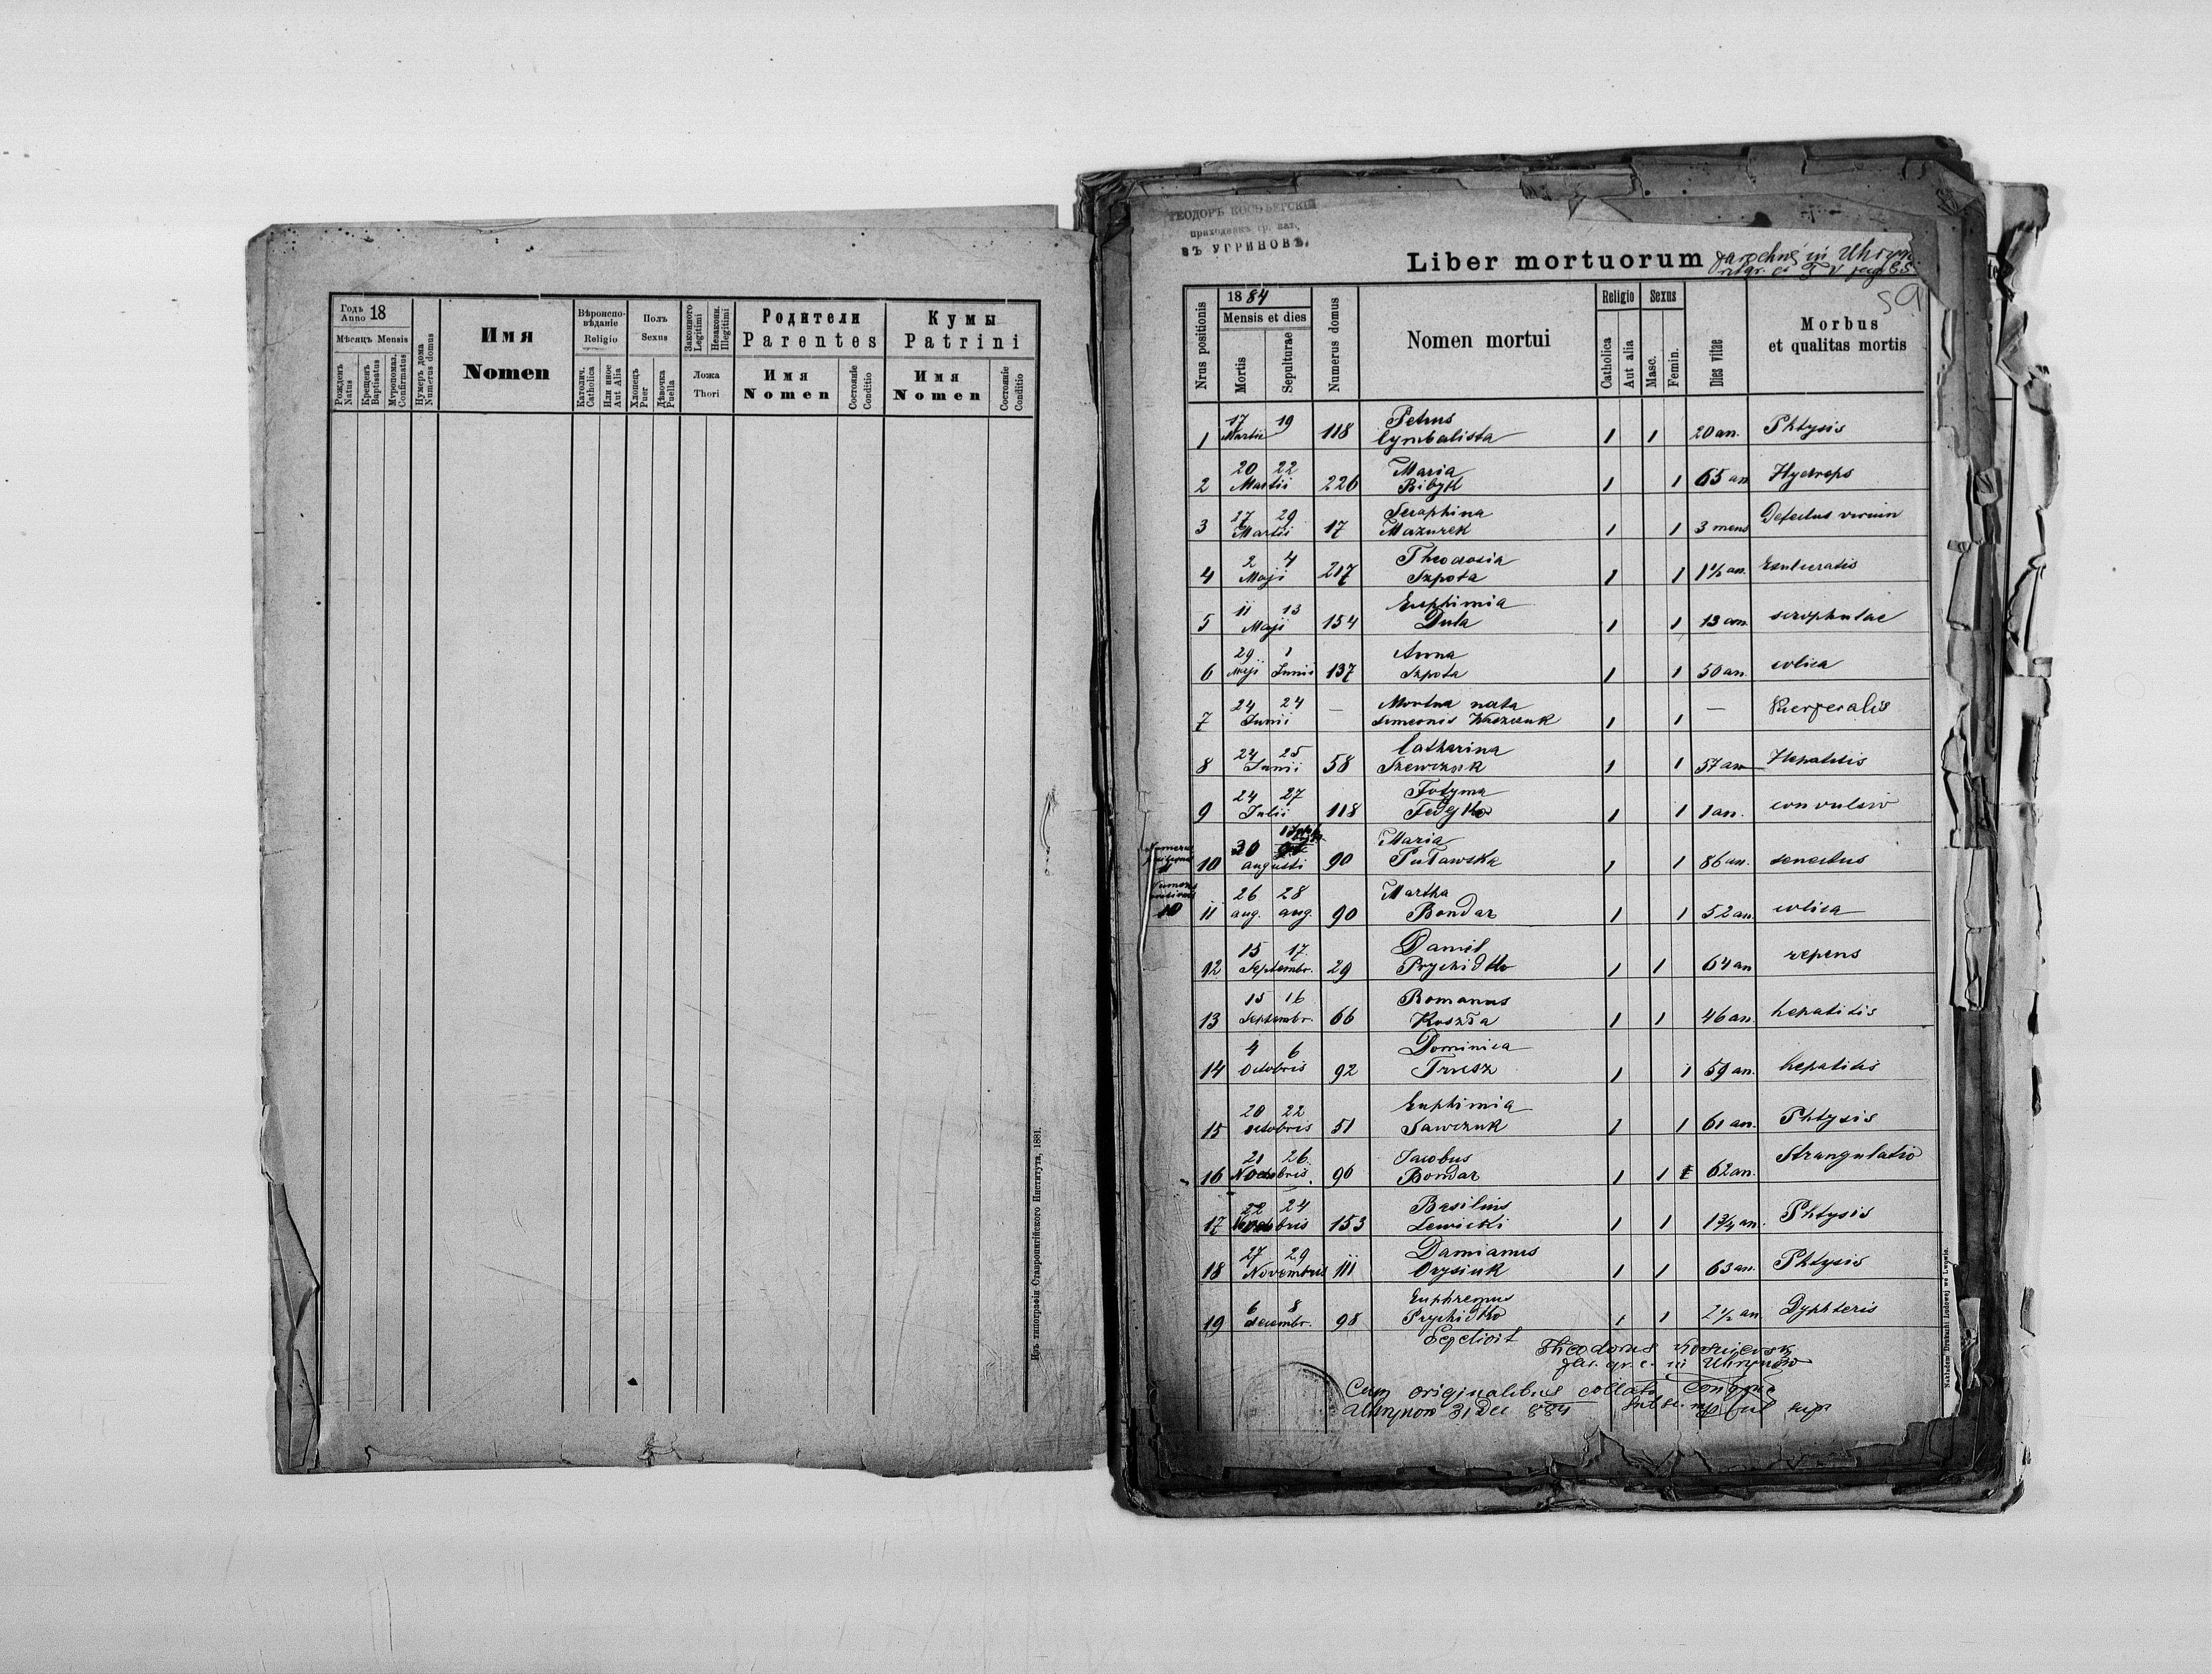 Годъ Anno 18
Мѣсяцъ Mensis
Рожденъ Natus
Крещенъ Baptisatus
Мѵропомаз. Confirmatus
Нумеръ дома Numerus domus
Имя
Nomen
Вѣроисповѣданіе
Religio
Католич. Catholica
Или иное Aut Alia
Полъ
Sexus
Хлопецъ Puer
Дѣвочка Puella
Законного Legitimi
Незаконн. Illegitimi
Ложа
Thori
Родители
Parentes
Имя
Nomen
Состояніе Conditio
Кумы
Patrini
Имя
Nomen
Состояніе Conditio
Изъ типографіи Ставропигійского Института, 1881.
ТЕОДОРЪ
приходникъ гр. кат.
въ УГРИНОВѢ.
Liber mortuorum
59
Nrus positionis
1884
Mensis et dies
Mortis
Sepulturae
Numerus domus
Nomen mortui
Religio
Catholica
Aut alia
Sexus
Masc.
Femin.
Dies vitae
Morbus
et qualitas mortis
17 19 Petrus
1 Martii 118 Cymbalista 1 1 20 an. Phtysis
20 22 Maria
2 Martii 226 Bibyk 1 1 65 an Hydrops
27 29 Seraphina
3 Martii 17 Mazurek 1 1 3 mens Defectus virium
2 4 Theodosia
4 Maji 217 Szpota 1 1 1½ an. Exulceratis
11 13 Euphimia
5 Maji 154 Duta 1 1 13 an. scrophulae
29 1 Anna
6 Maji Junii 137 Szpota 1 1 50 an. colica
24 24 Mortua nata
7 Junii — Simeonis 1 1 — Puerperalis
24 25 Catharina
8 Junii 58 Szewczuk 1 1 57 an Hepatitis
24 27 Fotyma
9 Julii 118 Fedyko 1 1 1 an. convulsio
30 Maria
10 augusti 90 Puławska 1 1 86 an. senectus
10
26 28 Martha
11 aug. aug. 90 Bondar 1 1 52 an. colica
15 17 Daniel
12 Septembr. 29 Prychidko 1 1 64 an repens
15 16 Romanus
13 Septembr. 66 Koszła 1 1 46 an. hepatitis
4 6 Dominica
14 Octobris 92 Trusz 1 1 59 an. hepatitis
20 22 Euphimia
15 octobris 51 Sawczuk 1 1 61 an. Phtysis
21 26 Jacobus
16 96 Bondar 1 1 62 an. Strangulatio
22 24 Basilius
17 153 Lewicki 1 1 1¾ an. Phtysis
27 29 Damianus
18 Novembris 111 Orysiuk 1 1 63 an. Phtysis
6 8 Euphremus
19 decembr. 98 Prychidko 1 1 2½ an Dyphteris
Sepelivit
Theodorus
par. gr. c. in Uhrynów
Cum originalibus collata
Uhrynow 31 Dec 884
Nakładem Drukarni Ludowej we Lwowie.